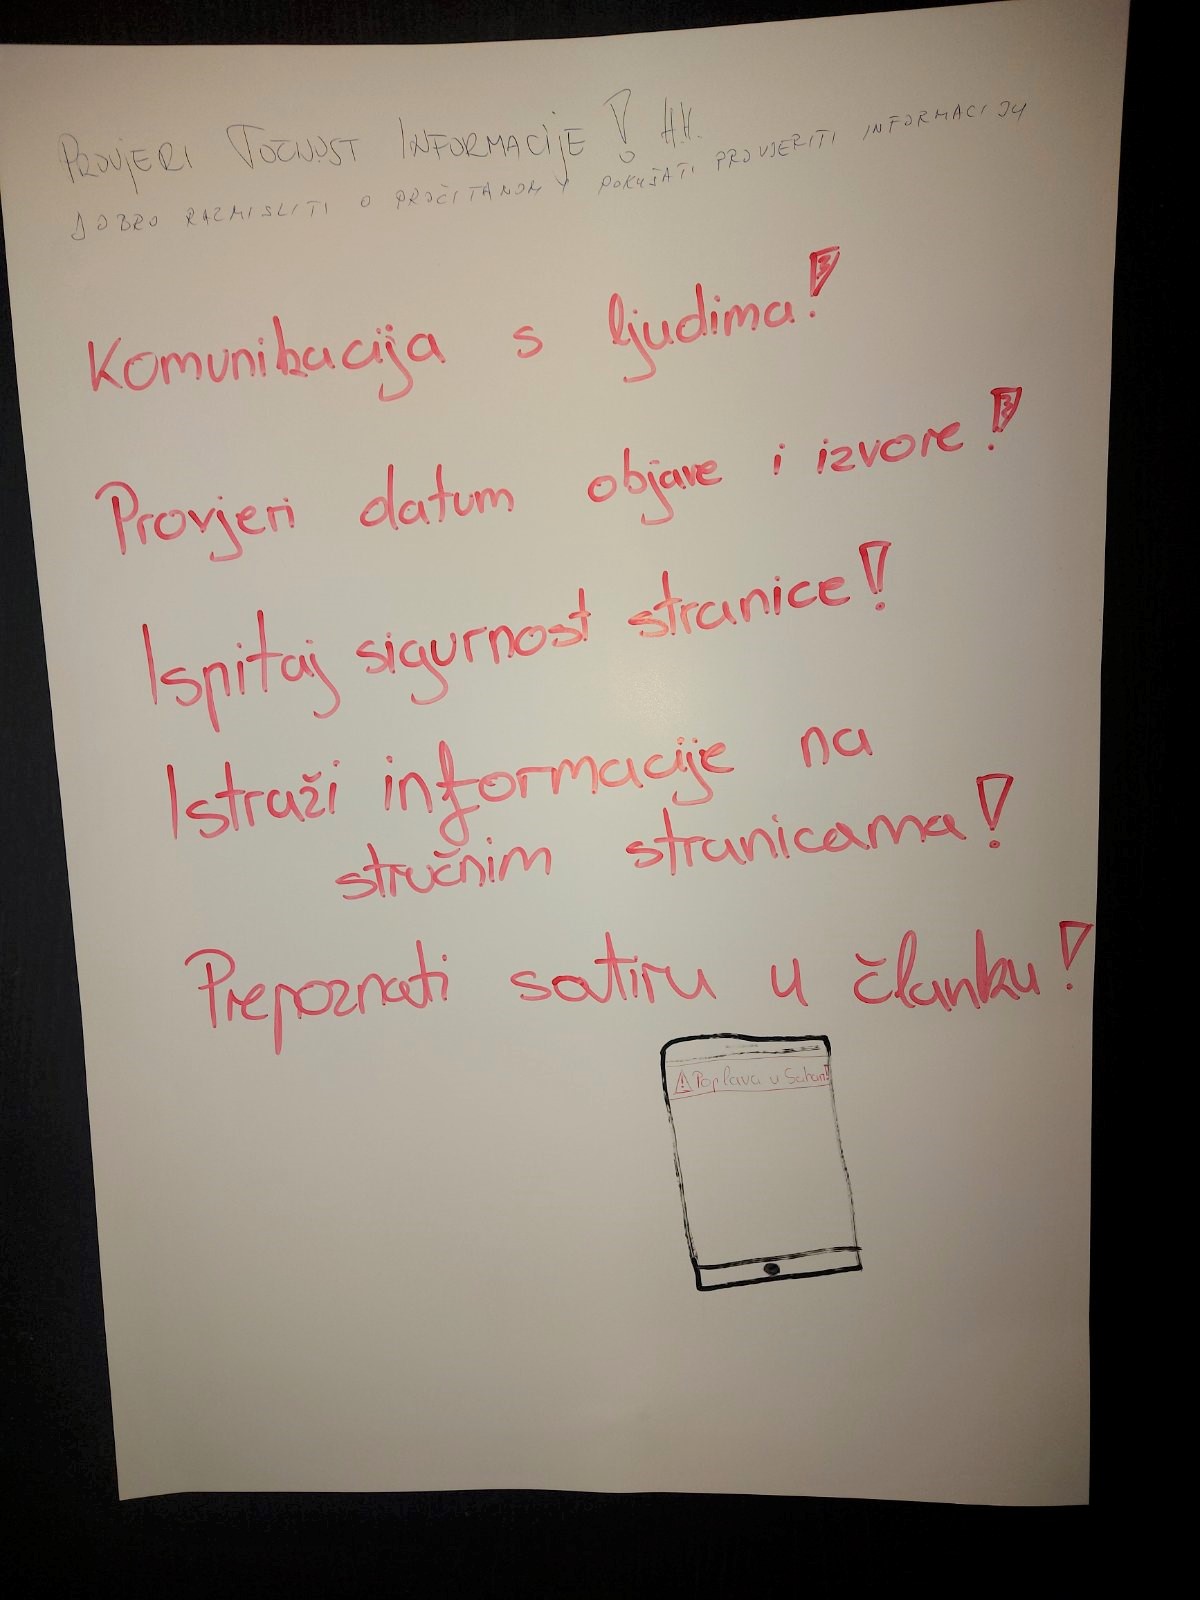 PROVJERI TOČNOST INFORMACIJE! H.H.
DOBRO RAZMISLITI O PROČITANOM I POKUŠATI PROVJERITI INFORMACIJU
Komunikacija s ljudima!
Provjeri datum objave i izvore!
Ispitaj sigurnost stranice!
Istraži informacije na
stručnim stranicama!
Prepoznati satiru u članku!
Poplava u Sahari!